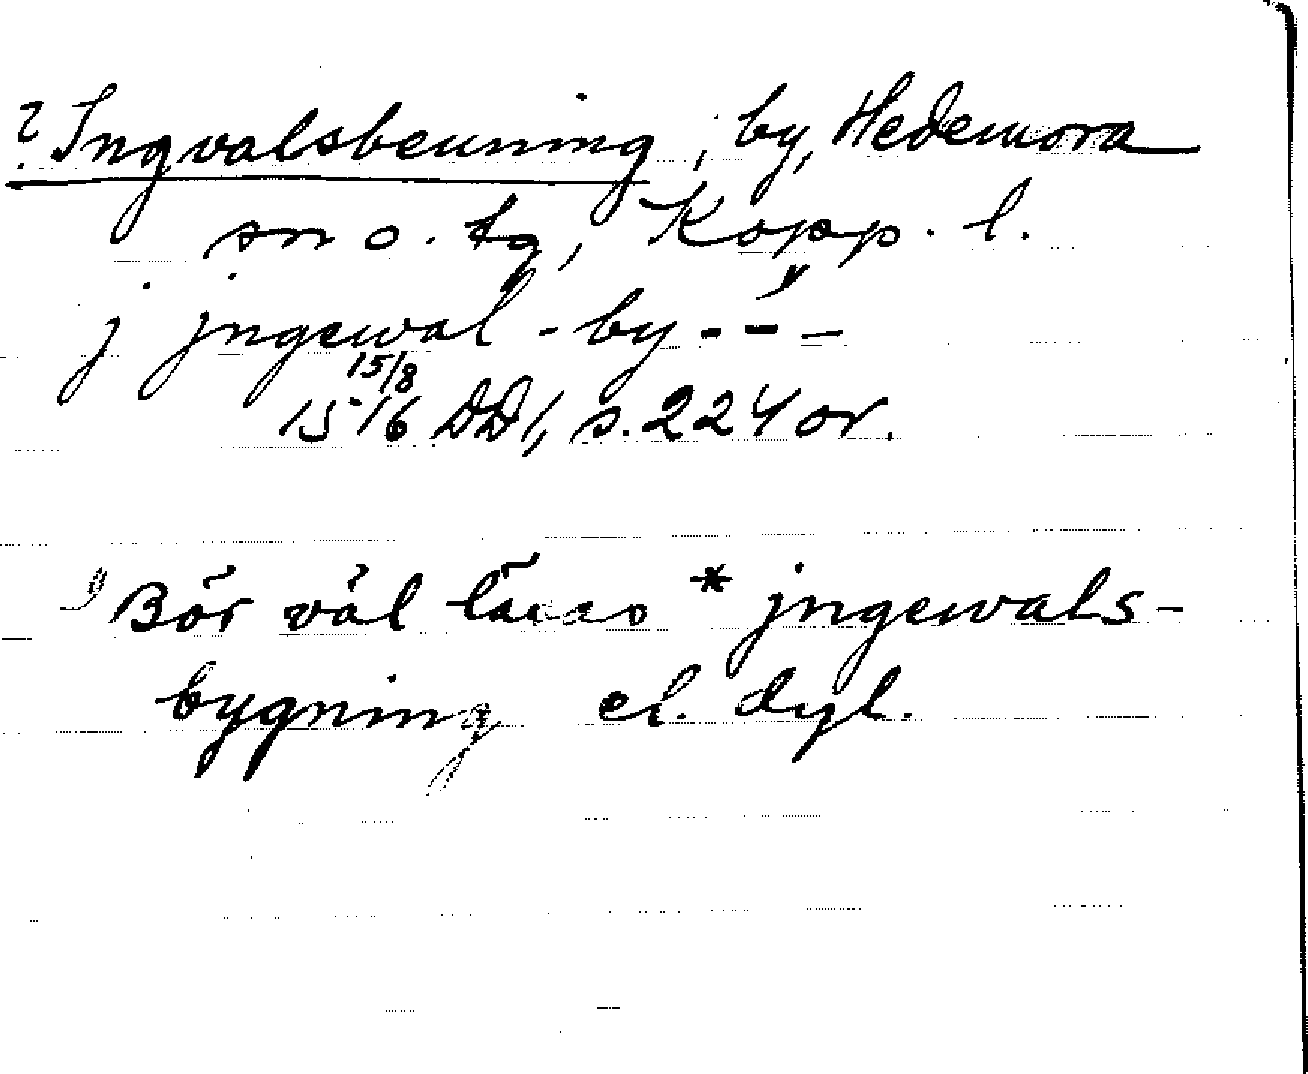 ? Ingvalsbenning, by, Hedemora
sn o. tg, Kopp. l.
j jngewal-by---¹⁾
15/8
1516 DD1, s. 224 or.
¹⁾ Bör väl läsas *jngewals-
bygning el. dyl.